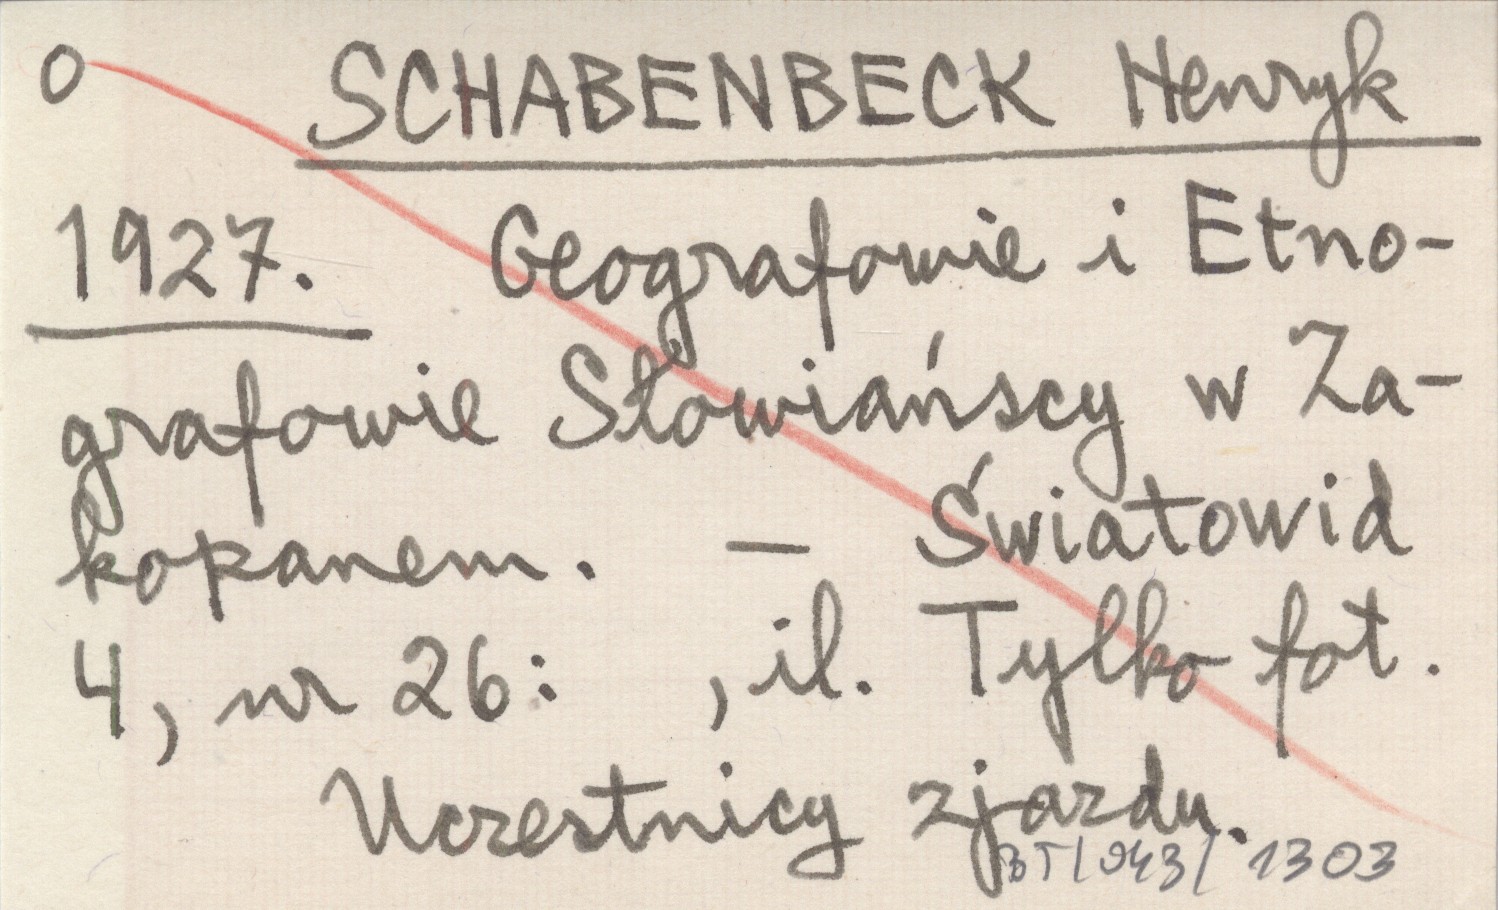 O SCHABENBECK Henryk
1927. Geografowie i Etno-
grafowie Słowiańscy w Za-
kopanem. — Światowid
4, nr 26: , il. Tylko fot.
Uczestnicy zjazdu.
BT/943/1303